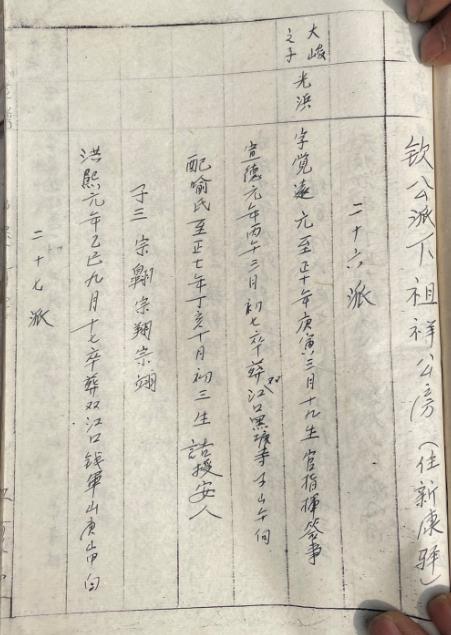 钦公派下祖祥公房（住新康驿）
二十六派
大峻之子
光浜 字觉远 元至正十年庚寅三月十九生 官指挥签事
宣德元年丙午三月初七卒葬双江口黑坡寺子山午向
配喻氏至正七年丁亥十月初三生 诰授安人
子三 宗翱宗翔宗翊
洪熙元年乙巳九月十七卒葬双江口钱军山庚山甲向
二十七派